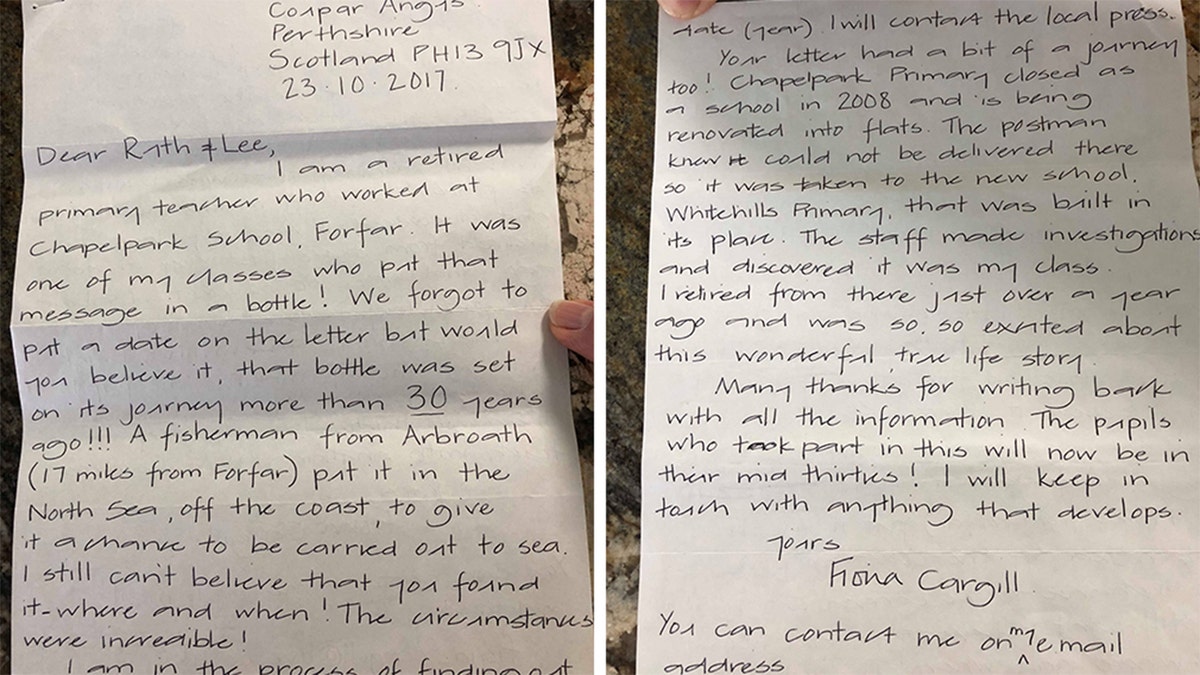 Coupar Angus
Perthshire
Scotland PH13 9JX
23.10.2017.
Dear Ruth & Lee,
I am a retired
primary teacher who worked at
Chapelpark School, Forfar. It was
one of my classes who put that
message in a bottle! We forgot to
put a date on the letter but would
you believe it, that bottle was set
on its journey more than 30 years
ago!!! A fisherman from Arbroath
(17 miles from Forfar) put it in the
North Sea, off the coast, to give
it a chance to be carried out to sea.
I still can't believe that you found
it-where and when! The circumstances
were incredible!
I am in the process of finding out
date (year). I will contact the local press.
Your letter had a bit of a journey
too! Chapelpark Primary closed as
a school in 2008 and is being
renovated into flats. The postman
knew it could not be delivered there
so it was taken to the new school,
Whitehills Primary, that was built in
its place. The staff made investigations
and discovered it was my class.
I retired from there just over a year
ago and was so, so excited about
this wonderful, true life story.
Many thanks for writing back
with all the information. The pupils
who took part in this will now be in
their mid thirties! I will keep in
touch with anything that develops.
Yours
Fiona Cargill
You can contact me on my email
address